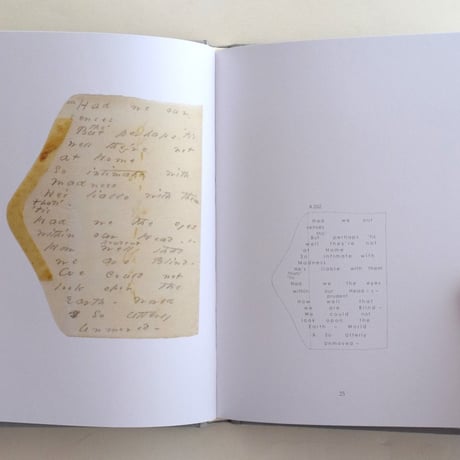 Had we our
senses
But perhaps 'tis
well they're not
at Home
So intimate with
Madness
He's liable with them
'tis
Had we the eyes
within our Head - -
prudent
How well that
we are Blind -
We could not
look upon the
Earth -
So utterly
Unmoved -
Had we our
senses
But perhaps 'tis
well they're not
at Home
So intimate with
Madness
He's liable with them
'tis
Had we the eyes
within our Head - -
prudent
How well that
we are Blind -
We could not
look upon the
Earth - World
So utterly
Unmoved -
25